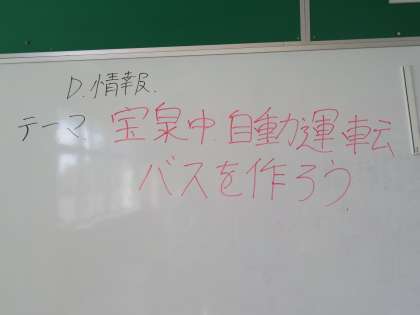 D.情報.
テーマ 宝泉中 自動運転
バスを作ろう